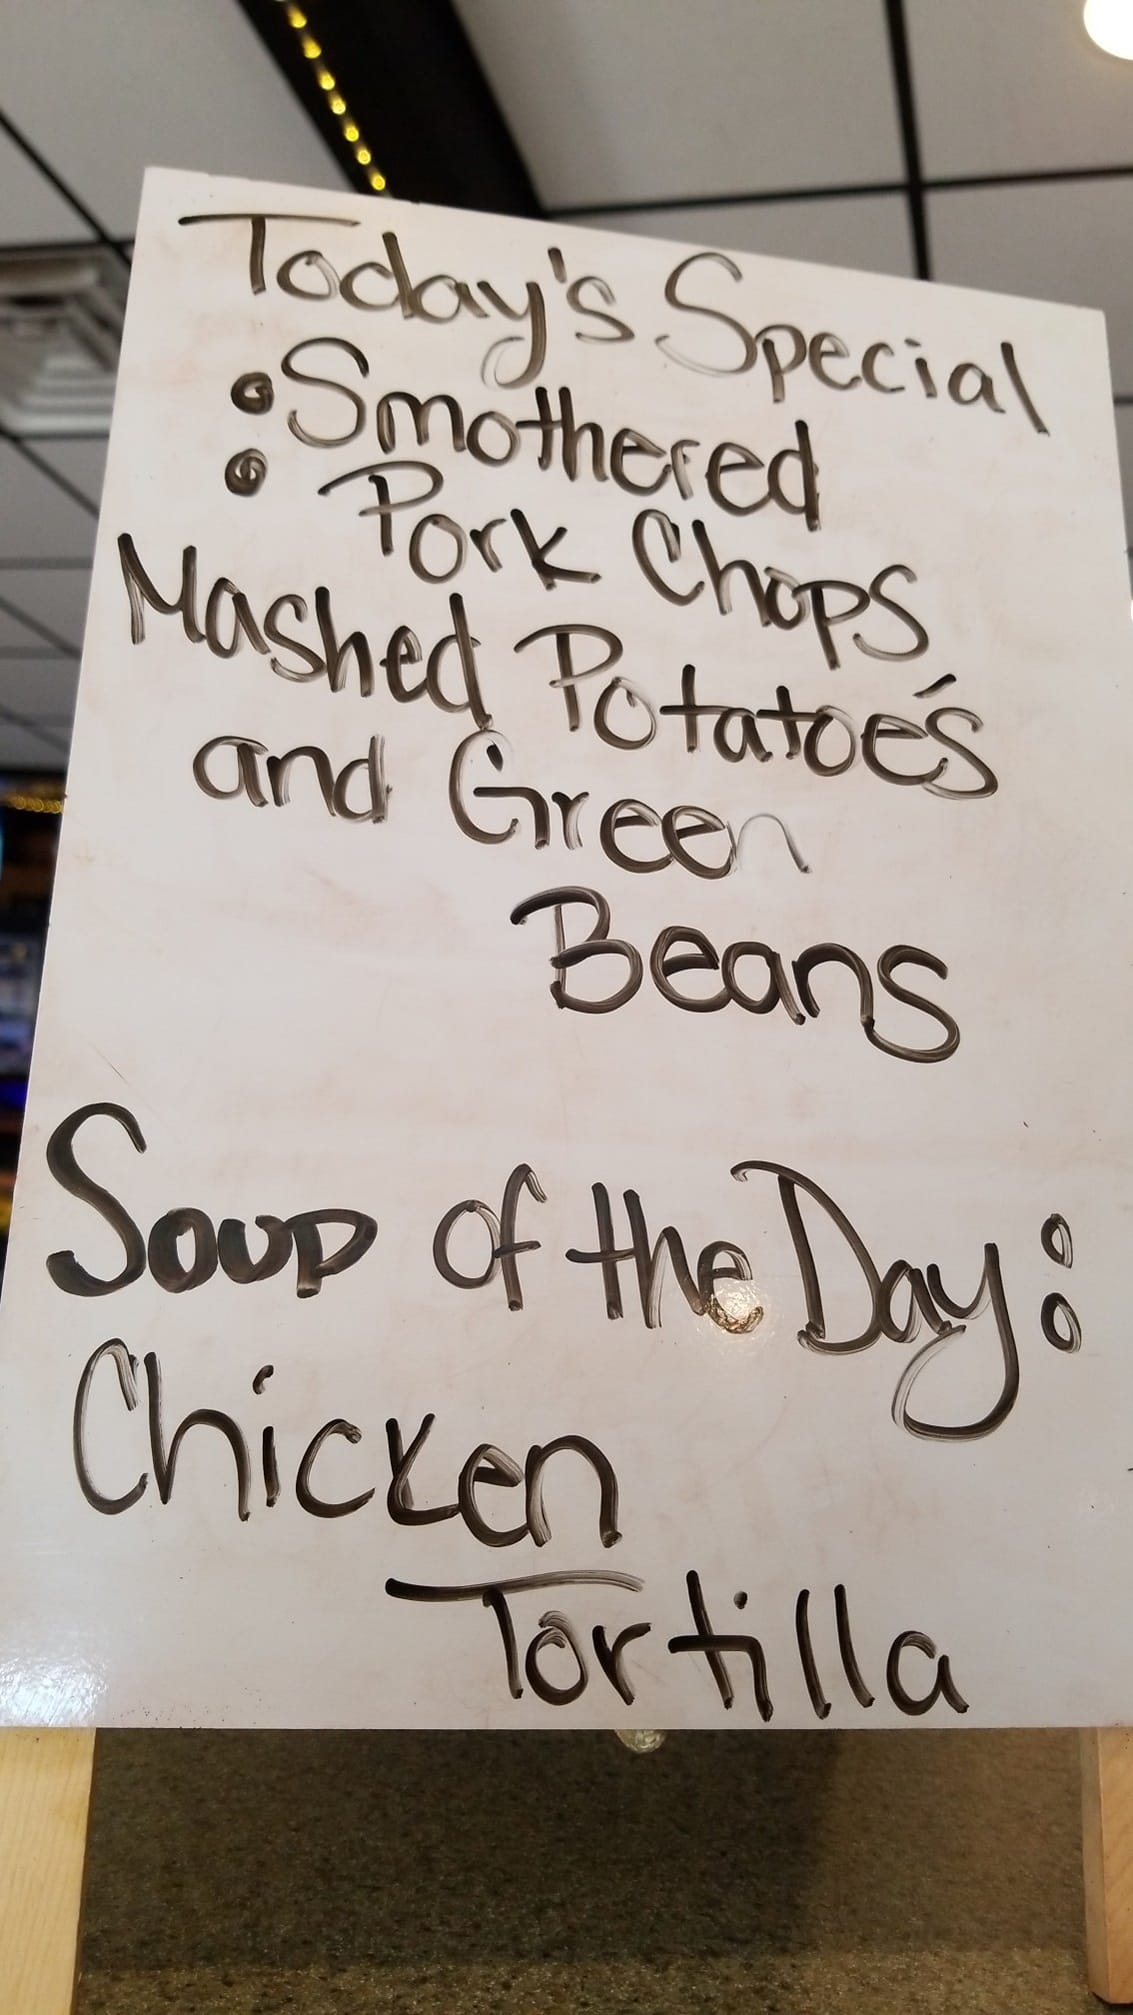 Today's Special
: Smothered
Pork Chops
Mashed Potatoe's
and Green
Beans
Soup of the Day:
Chicken
Tortilla